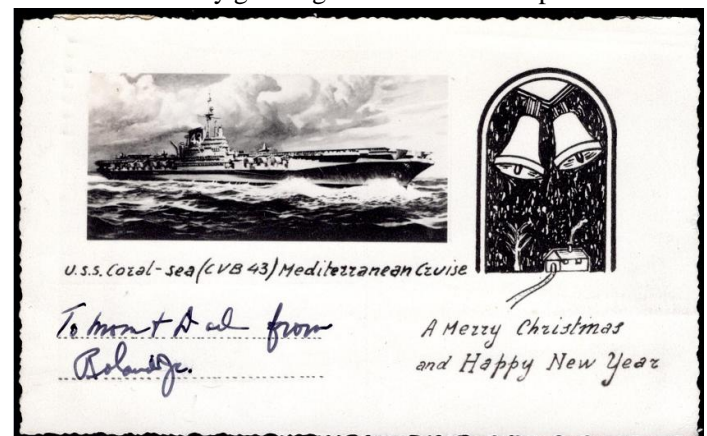 U.S.S. Coral-Sea (CVB 43) Mediterranean Cruise
To Mom + Dad from
Roland Jr.
A Merry Christmas
and Happy New Year